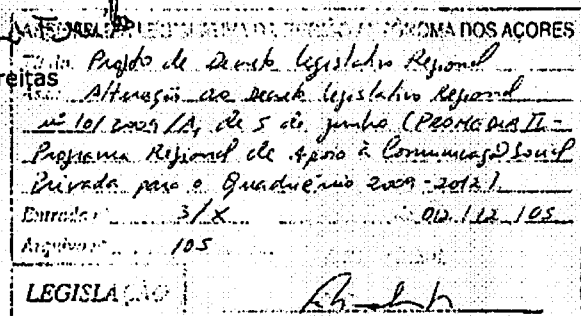 ASSEMBLEIA LEGISLATIVA DA REGIÃO AUTÓNOMA DOS AÇORES
reitas
Projeto de Decreto Legislativo Regional
Alteração ao Decreto Legislativo Regional
nº 10/2009/A, de 5 de junho (PROMEDIA II -
Programa Regional de Apoio à Comunicação Social
Privada para o Quadriénio 2009-2012)
Entrada 3/X 012/12/05
Arquivo 105
LEGISLAÇÃO